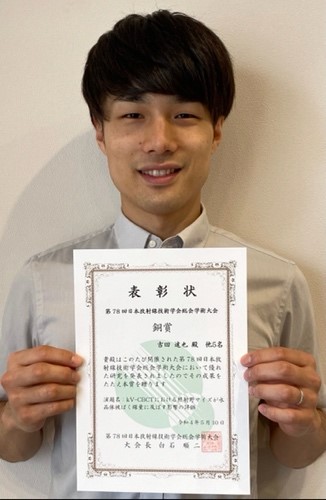 表彰状
第78回日本放射線技術学会総会学術大会
銅賞
吉田 達也 殿 他5名
貴殿はこのたび開催された第78回日本放
射線技術学会総会学術大会において優れ
た研究を発表されましたのでその成果を
たたえ本賞を贈ります
演題名:kV-CBCTにおける照射野サイズが水
晶体被ばく線量に及ぼす影響の評価
令和4年5月10日
第78回日本放射線技術学会総会学術大会
大会長 白石 順二